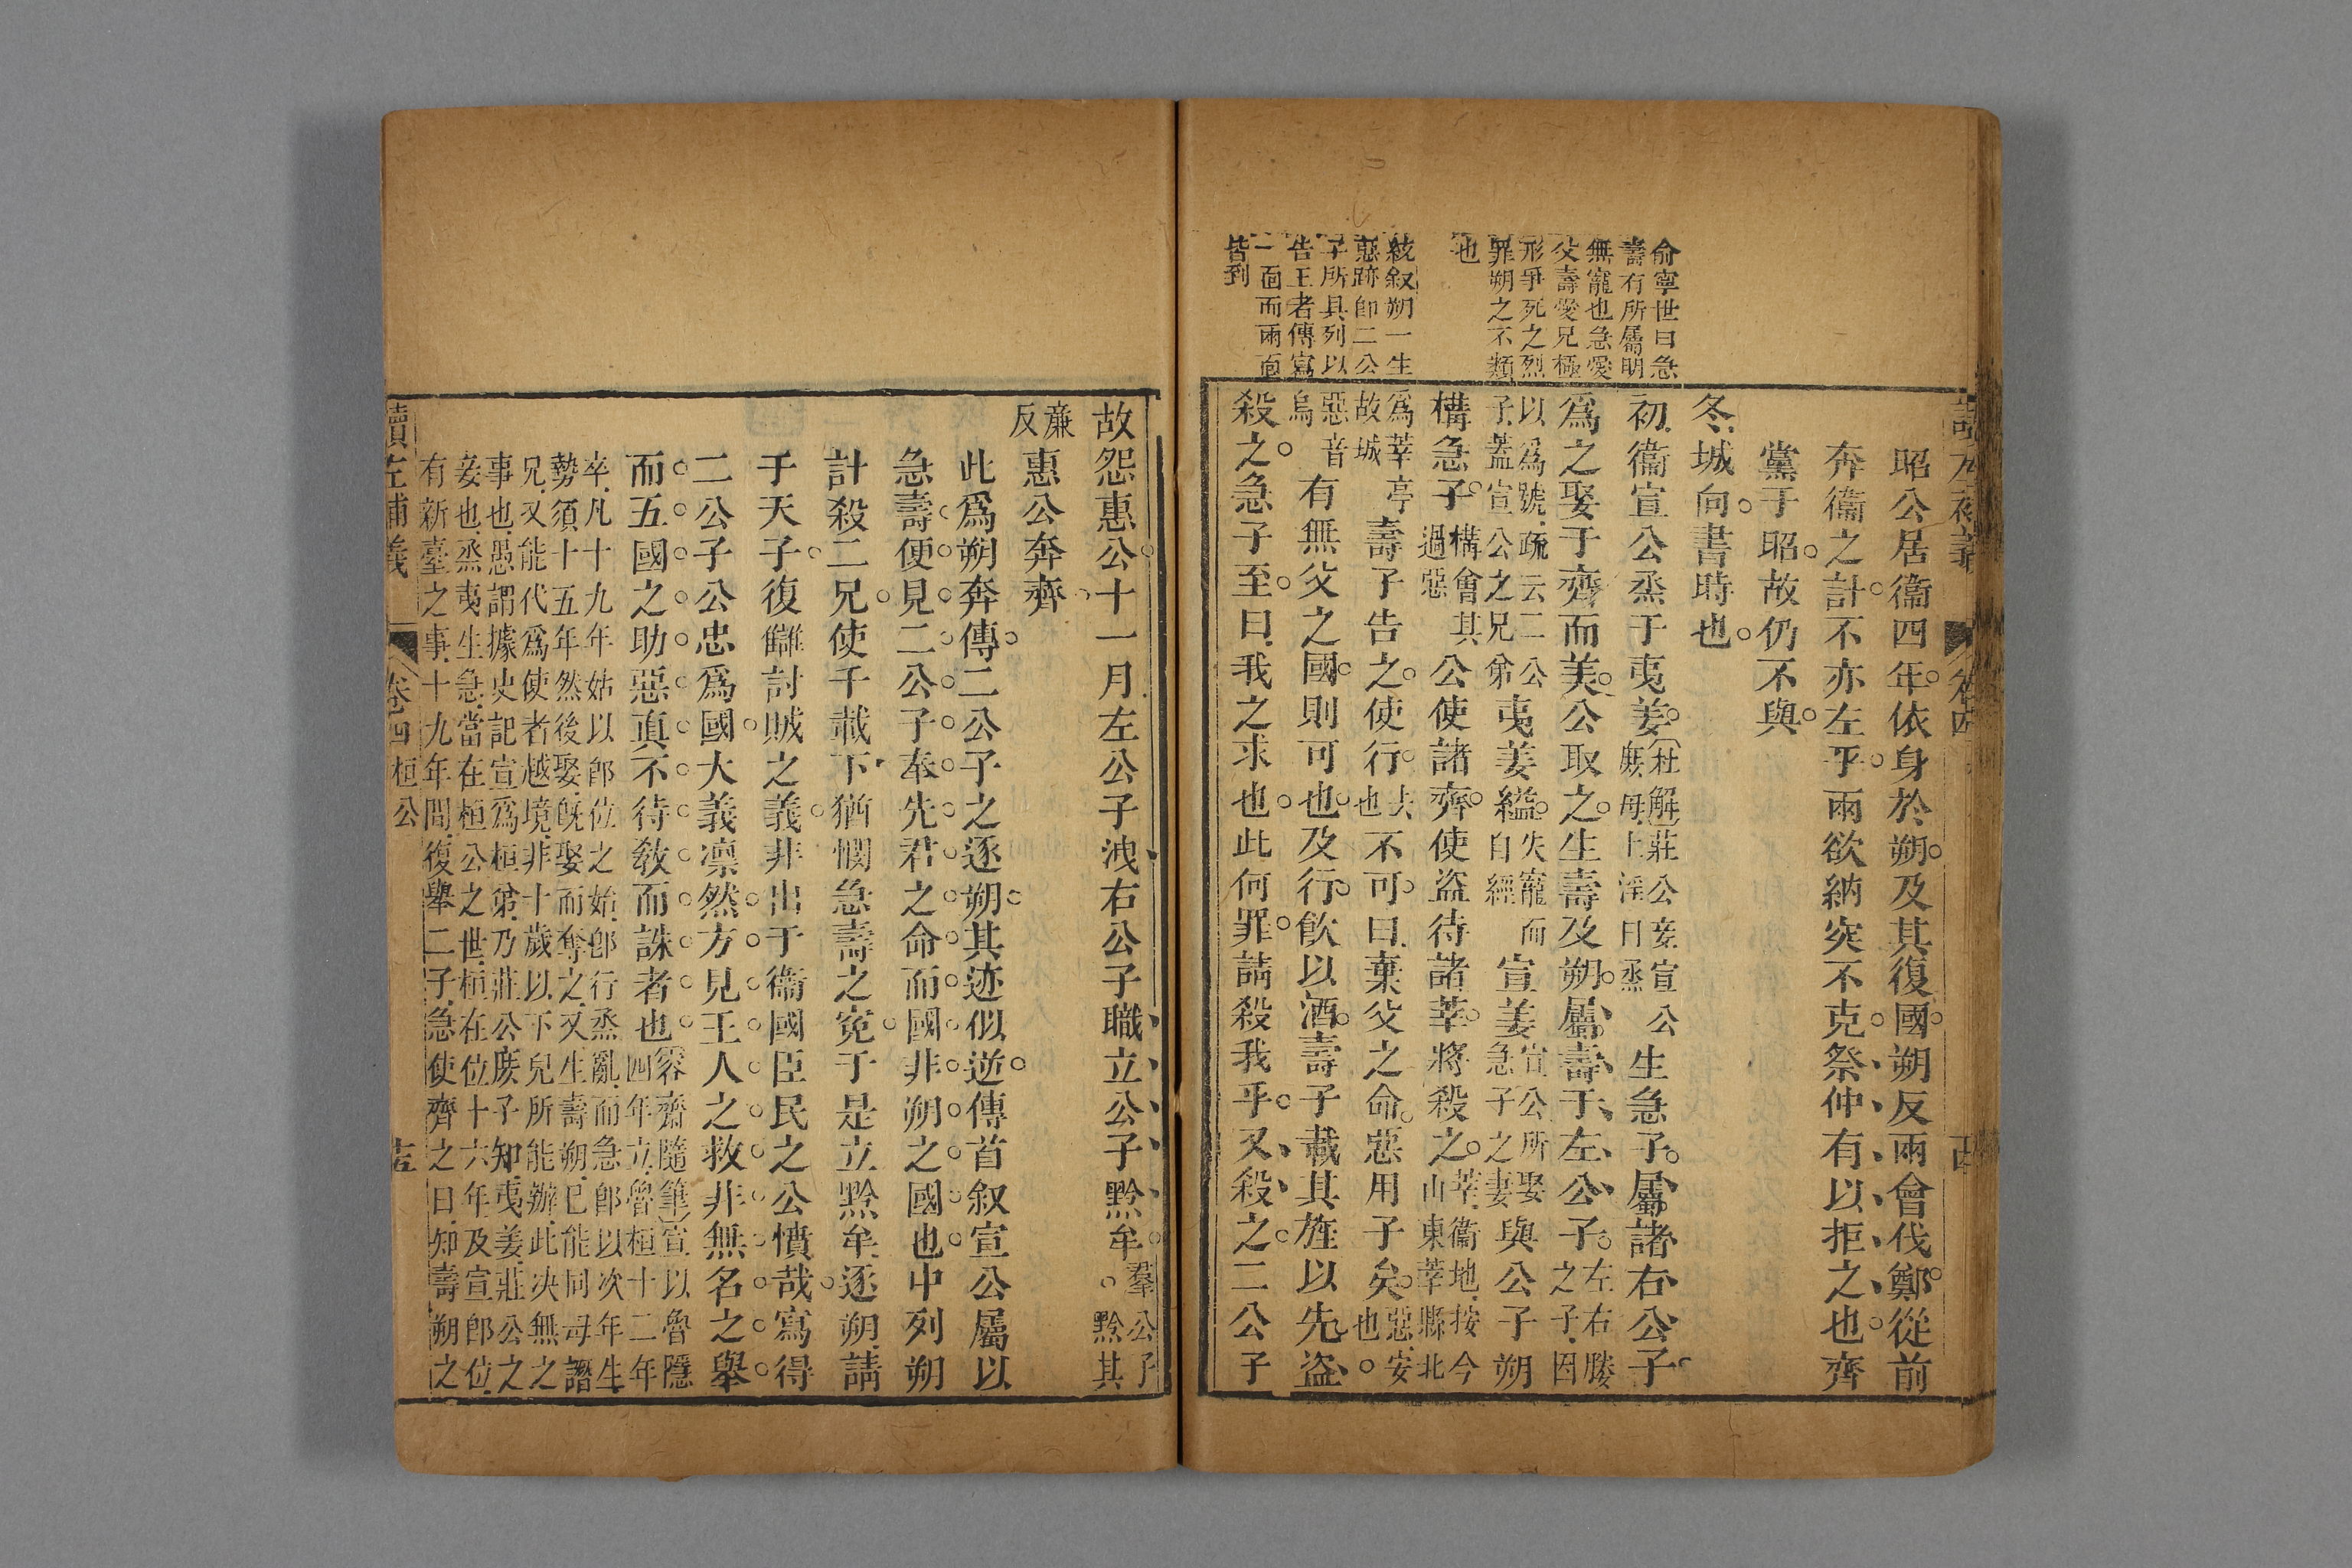 俞寧世曰急
壽有所屬明
無寵也急愛
父壽愛兄極
形爭死之烈
罪朔之不類
也
統叙朔一生
惡跡卽二公
子所具列以
告王者傳寫
一面而兩面
皆到
昭公居衞四年依身於朔及其復國朔反兩會伐鄭從前
奔衞之計不亦左乎兩欲納突不克祭仲有以拒之也齊
黨于昭故仍不與
冬城向書時也
初衞宣公烝于夷姜杜解莊公妾宣公庶母上淫曰烝生急子屬諸右公子
爲之娶于齊而美公取之生壽及朔屬壽于左公子左右媵之子因
以爲號疏云二公子蓋宣公之兄弟夷姜縊失寵而自經宣姜宣公所娶急子之妻與公子朔
構急子構會其過惡公使諸齊使盜待諸莘將殺之莘衞地按今山東莘縣北
爲莘亭故城壽子告之使行去也不可曰棄父之命惡用子矣惡安也
惡音烏有無父之國則可也及行飲以酒壽子載其旌以先盜
殺之急子至曰我之求也此何罪請殺我乎又殺之二公子
故怨惠公十一月左公子洩右公子職立公子黔牟羣公子黔其
廉反惠公奔齊
此爲朔奔傳二公子之逐朔其迹似逆傳首叙宣公屬以
急壽便見二公子奉先君之命而國非朔之國也中列朔
計殺二兄使千載下猶憫急壽之寃于是立黔牟逐朔請
于天子復讎討賊之義非出于衞國臣民之公憤哉寫得
二公子公忠爲國大義凛然方見王人之救非無名之舉
而五國之助惡眞不待敎而誅者也容齋隨筆宣以魯隱四年立魯桓十二年
卒凡十九年姑以卽位之始卽行烝亂而急卽以次年生
勢須十五年然後娶旣娶而奪之又生壽朔已能同母譖
兄又能代爲使者越境非十歲以下兒所能辦此决無之
事也愚謂據史記宣爲桓弟乃莊公庶子知夷姜莊公之
妾也烝夷生急當在桓公之世桓在位十六年及宣卽位
有新臺之事十九年間復舉二子急使齊之日知壽朔之
讀左補義
卷四桓公